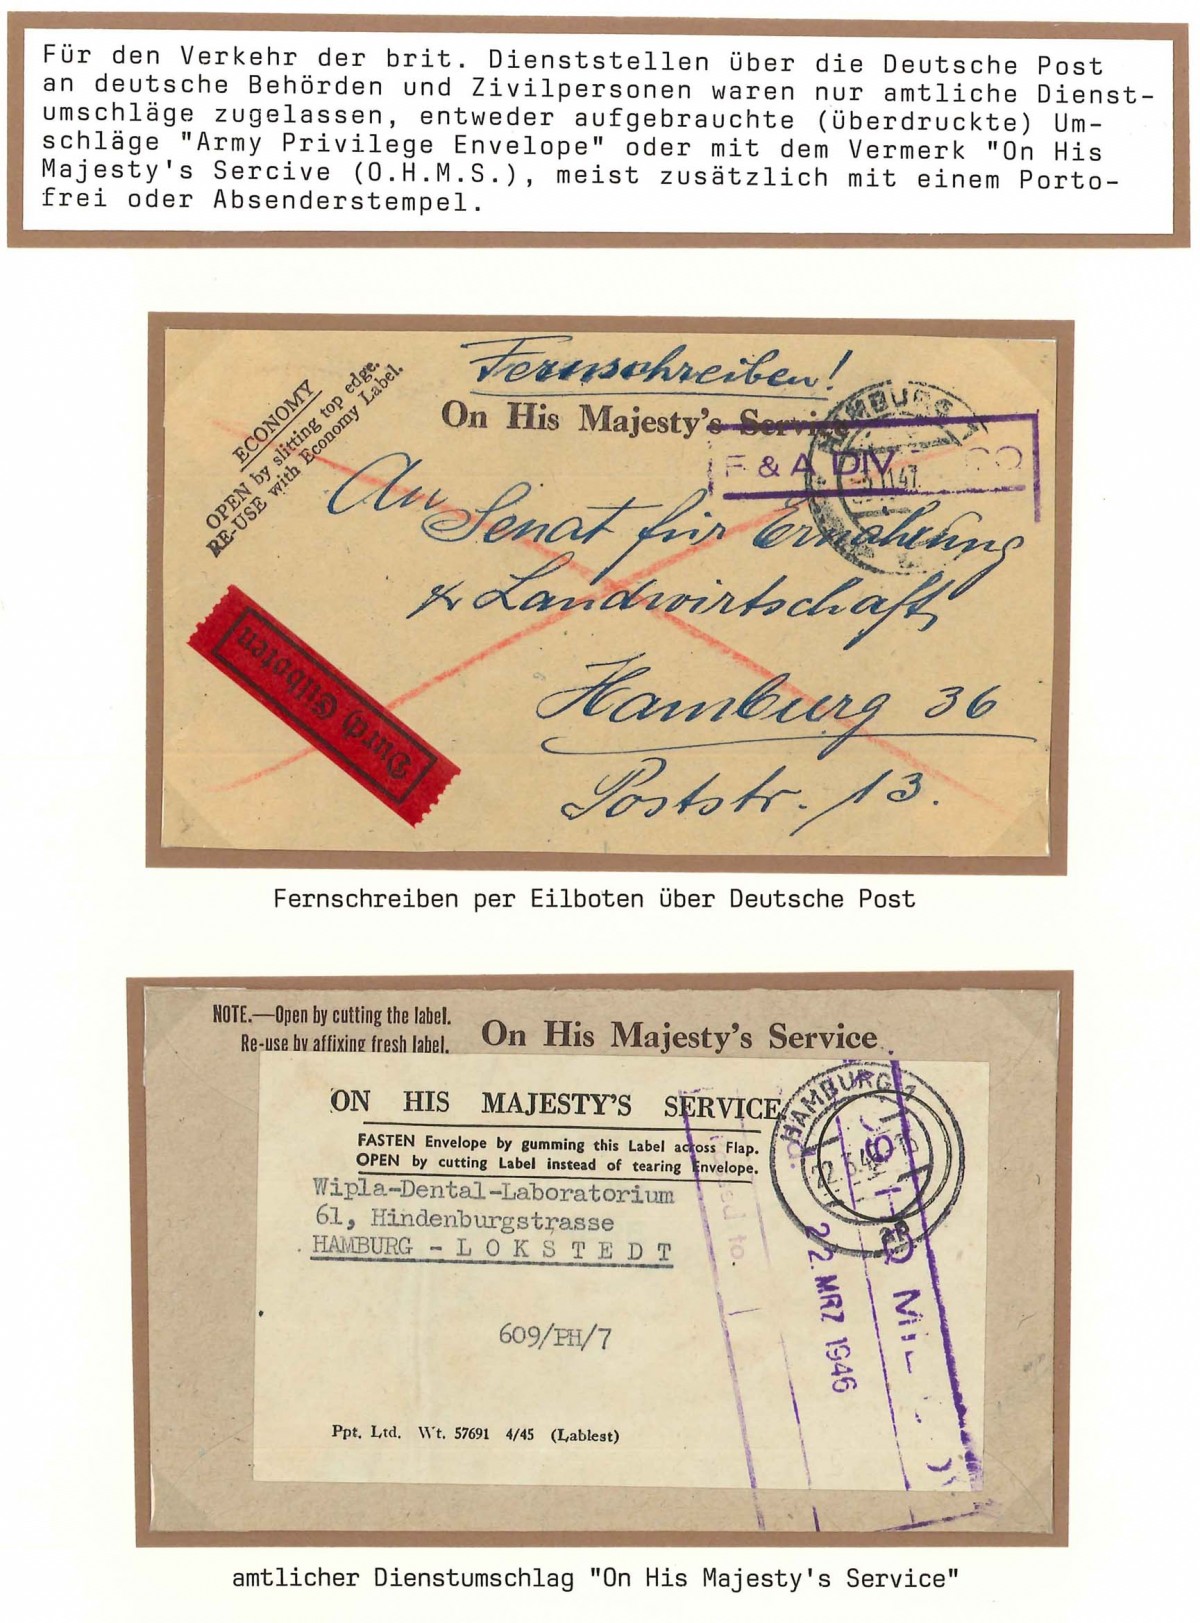 Für den Verkehr der brit. Dienststellen über die Deutsche Post
an deutsche Behörden und Zivilpersonen waren nur amtliche Dienst-
umschläge zugelassen, entweder aufgebrauchte (überdruckte) Um-
schläge "Army Privilege Envelope" oder mit dem Vermerk "On His
Majesty's Sercive (O.H.M.S.), meist zusätzlich mit einem Porto-
frei oder Absenderstempel.
ECONOMY
OPEN by slitting top edge.
RE-USE with Economy Label.
Fernschreiben!
On His Majesty's Service
HAMBURG 1
F & A DIV
An
Senat für Ernährung
& Landwirtschaft
Hamburg 36
Poststr. 13.
Durch Eilboten
Fernschreiben per Eilboten über Deutsche Post
NOTE.—Open by cutting the label.
Re-use by affixing fresh label.
On His Majesty's Service
ON HIS MAJESTY'S SERVICE
FASTEN Envelope by gumming this Label across Flap.
OPEN by cutting Label instead of tearing Envelope.
Wipla-Dental-Laboratorium
61, Hindenburgstrasse
HAMBURG - LOKSTEDT
609/PH/7
Ppt. Ltd. Wt. 57691 4/45 (Lablest)
HAMBURG 1
to.
22. MRZ 1946
amtlicher Dienstumschlag "On His Majesty's Service"